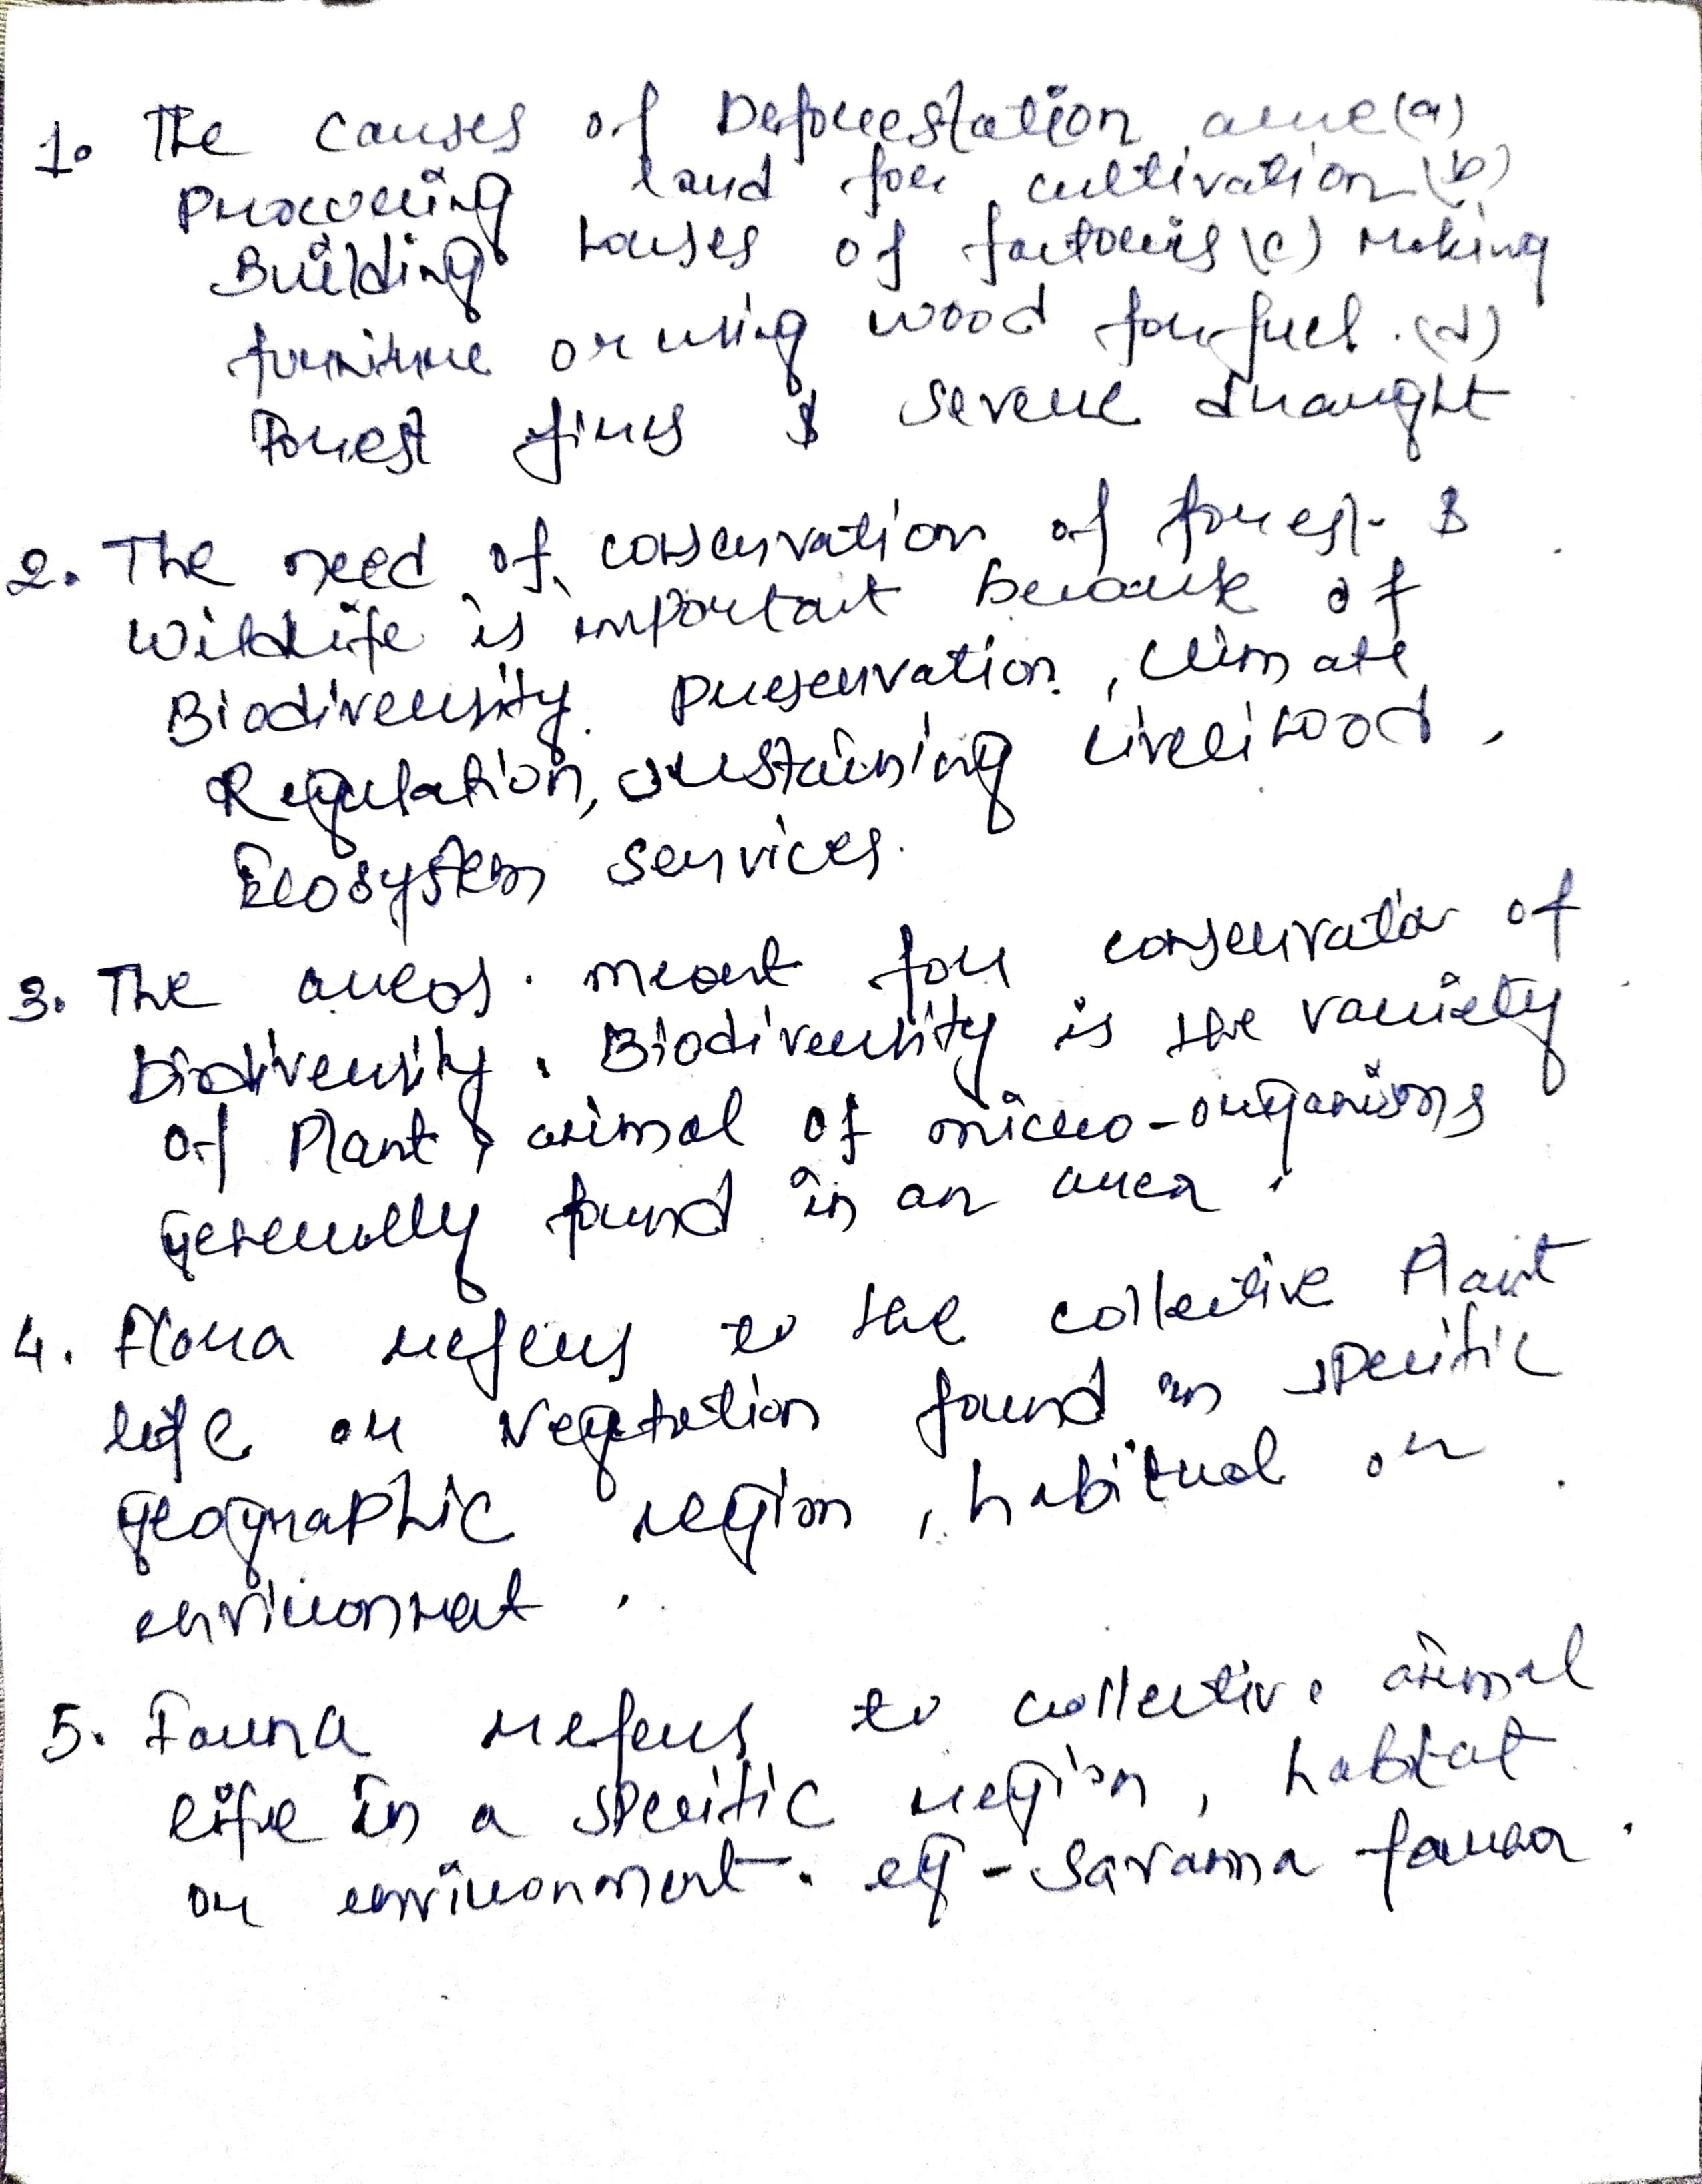 1. The causes of Deforestation are (a)
Procuring land for cultivation (b)
Building houses of factories (c) Making
furniture or using wood for fuel. (d)
Forest fires & severe draught
2. The need of conservation of forest &
Wildlife is important because of
Biodiversity preservation, climate
Regulation, sustaining livelihood,
Ecosystem services.
3. The areas meant for conservation of
biodiversity. Biodiversity is the variety
of Plant, animal of micro-organisms
generally found in an area.
4. Flora refers to the collective Plant
life or vegetation found in specific
geographic region, habitual or
environmat.
5. Fauna refers to collective animal
life in a specific region, habitat
or environment. eg - Savanna fauna.